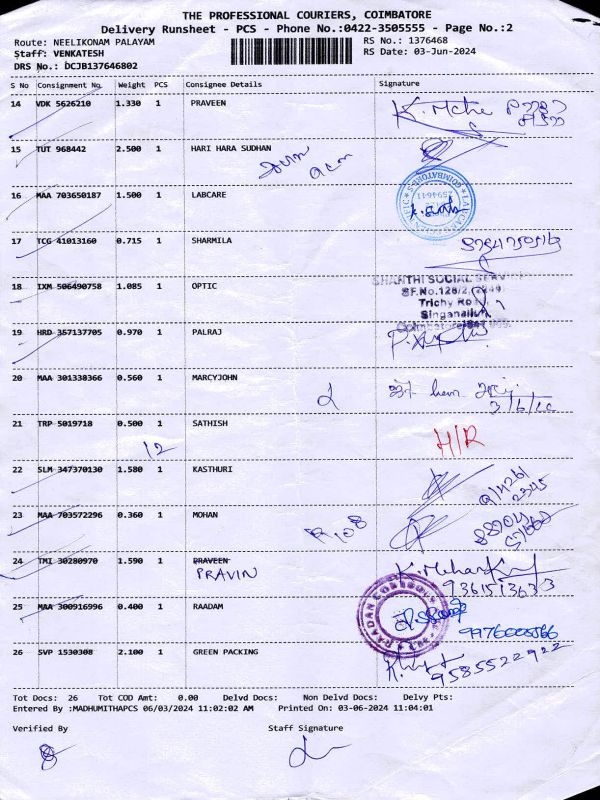 THE PROFESSIONAL COURIERS, COIMBATORE
Delivery Runsheet - PCS - Phone No.:0422-3505555 - Page No.:2
Route: NEELIKONAM PALAYAM RS No.: 1376468
Staff: VENKATESH RS Date: 03-Jun-2024
DRS No.: DCJB137646802
S No Consignment No. Weight PCS Consignee Details Signature
14 VDK 5626210 1.330 1 PRAVEEN
15 TUT 968442 2.500 1 HARI HARA SUDHAN
16 MAA 703650187 1.500 1 LABCARE
17 TCG 41013160 0.715 1 SHARMILA
18 IXM 506490758 1.085 1 OPTIC
SHANTHI SOCIAL
SF.No.126/2,
Trichy Ro
Singanallur
19 HRD 357137705 0.970 1 PALRAJ
20 MAA 301338366 0.560 1 MARCYJOHN
21 TRP 5019718 0.500 1 SATHISH H/R
12
22 SLM 347370130 1.580 1 KASTHURI
23 MAA 703572296 0.360 1 MOHAN
24 TMI 30280970 1.590 1 PRAVEEN
PRAVIN
9361513633
25 MAA 300916996 0.400 1 RAADAM
26 SVP 1530308 2.100 1 GREEN PACKING
9585522922
Tot Docs: 26 Tot COD Amt: 0.00 Delvd Docs: Non Delvd Docs: Delvy Pts:
Entered By :MADHUMITHAPCS 06/03/2024 11:02:02 AM Printed On: 03-06-2024 11:04:01
Verified By Staff Signature